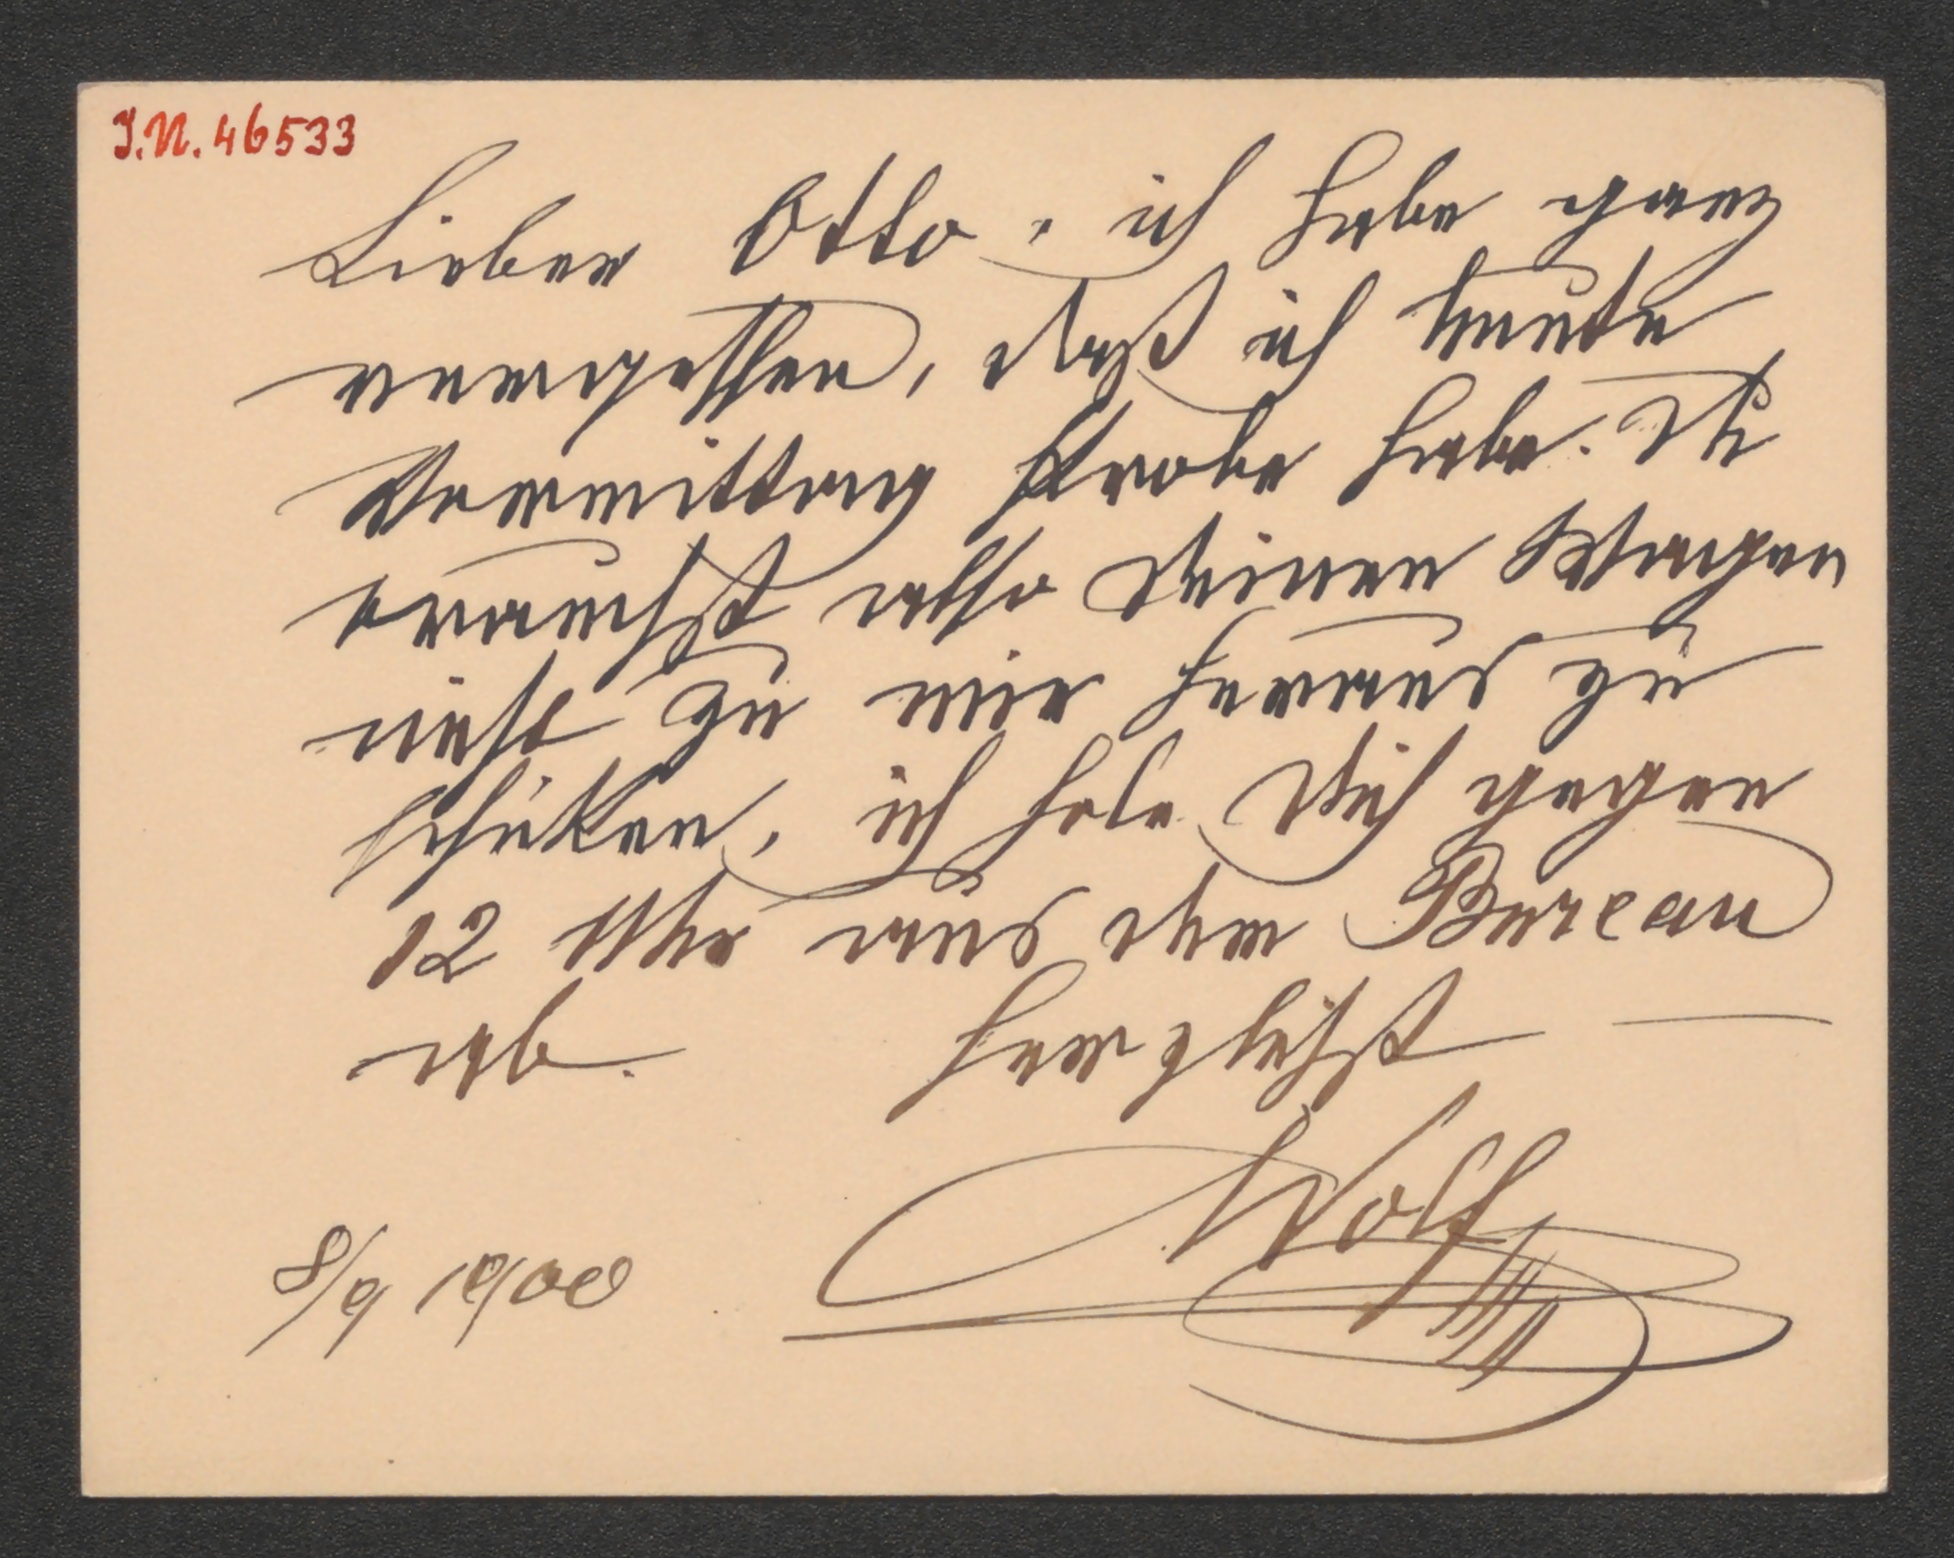 J.N. 46533
Lieber Otto, ich habe ganz
vergessen, daß ich heute
Vormittag Probe habe. Du
brauchst also Deinen Wagen
nicht zu mir heraus zu
schicken, ich hole Dich gegen
12 Uhr aus dem Bureau
ab. Herzlichst
Wolf
8/9 1900